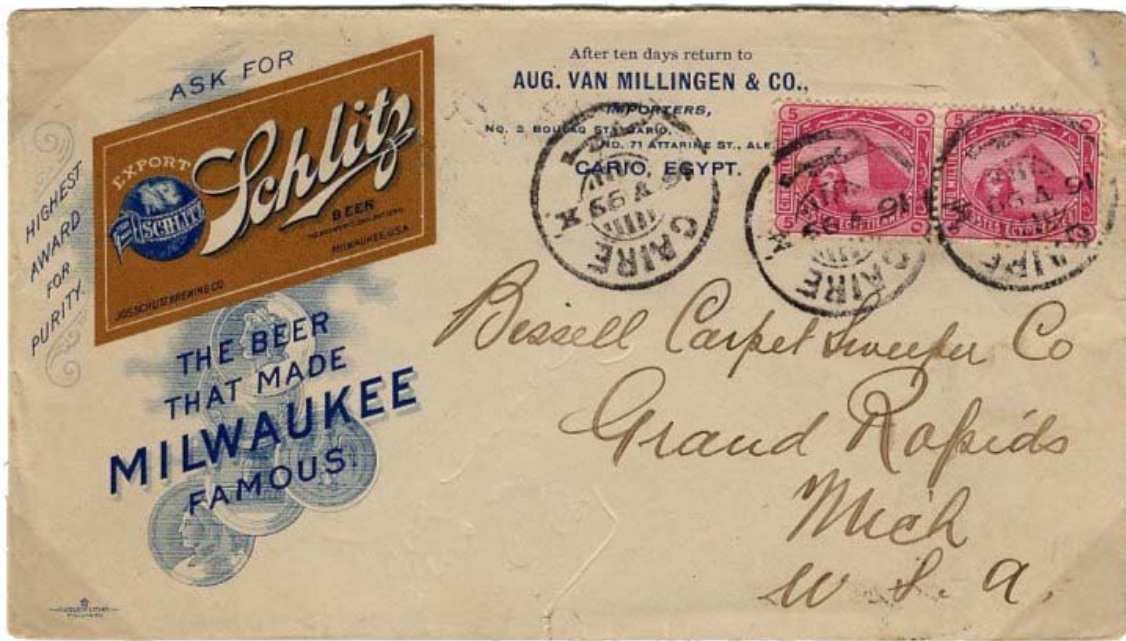 ASK FOR
EXPORT
Schlitz
SCHLITZ
BEER
MILWAUKEE, USA.
JOS. SCHLITZ BREWING CO.
HIGHEST
AWARD
FOR
PURITY.
THE BEER
THAT MADE
MILWAUKEE
FAMOUS.
After ten days return to
AUG. VAN MILLINGEN & CO.,
IMPORTERS,
NO. 3 BOULAQ ST., CARIO,
NO. 71 ATTARINE ST., ALE
CARIO, EGYPT.
CAIRE
16 V 99
5
5
CAIRE
16 V 99
CAIRE
16 V 99
Bissell Carpet Sweeper Co
Grand Rapids
Mich
U. S. A.